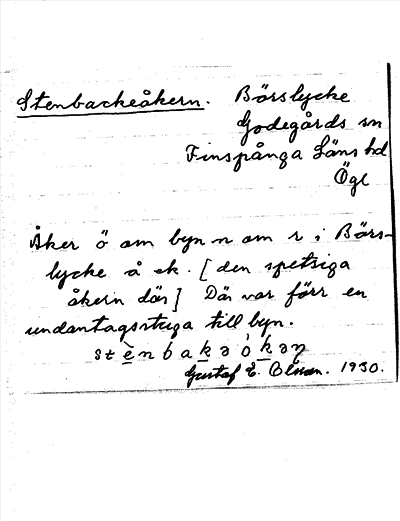 Stenbackeåkern. Börslycke
Godegårds sn
Finspånga Läns hd
Ögl
Åker ö om byn n om r i Börs-
lycke å ek. [den spetsiga
åkern där] Där var förr en
undantagsstuga till byn.
stènbakəòkəṇ
Gustaf E. 1930.